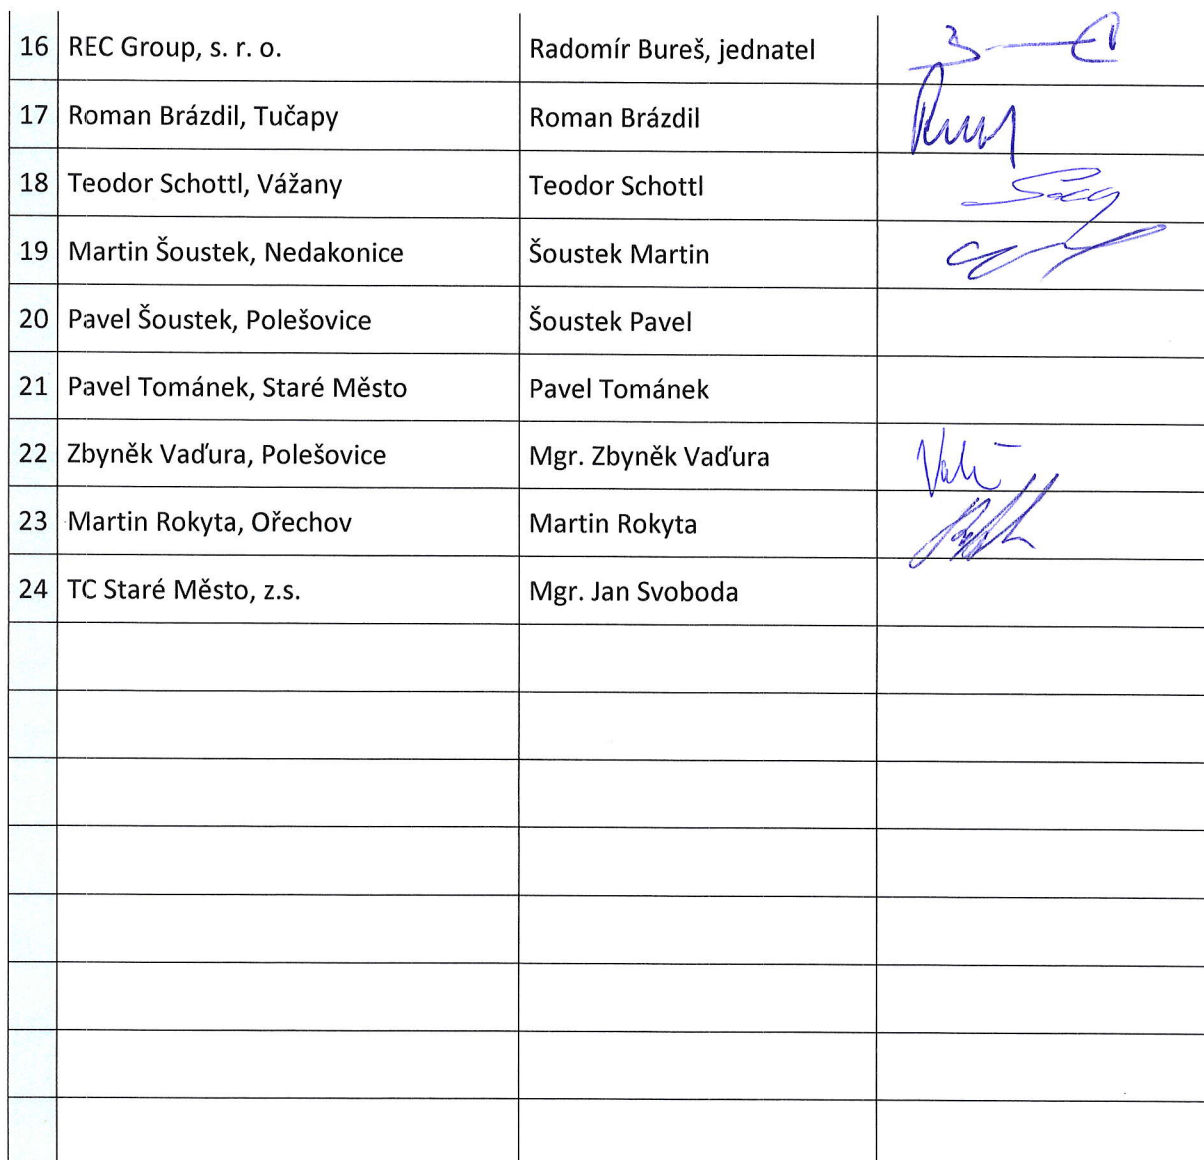 16 REC Group, s. r. o. Radomír Bureš, jednatel
17 Roman Brázdil, Tučapy Roman Brázdil
18 Teodor Schottl, Vážany Teodor Schottl
19 Martin Šoustek, Nedakonice Šoustek Martin
20 Pavel Šoustek, Polešovice Šoustek Pavel
21 Pavel Tománek, Staré Město Pavel Tománek
22 Zbyněk Vaďura, Polešovice Mgr. Zbyněk Vaďura
23 Martin Rokyta, Ořechov Martin Rokyta
24 TC Staré Město, z.s. Mgr. Jan Svoboda